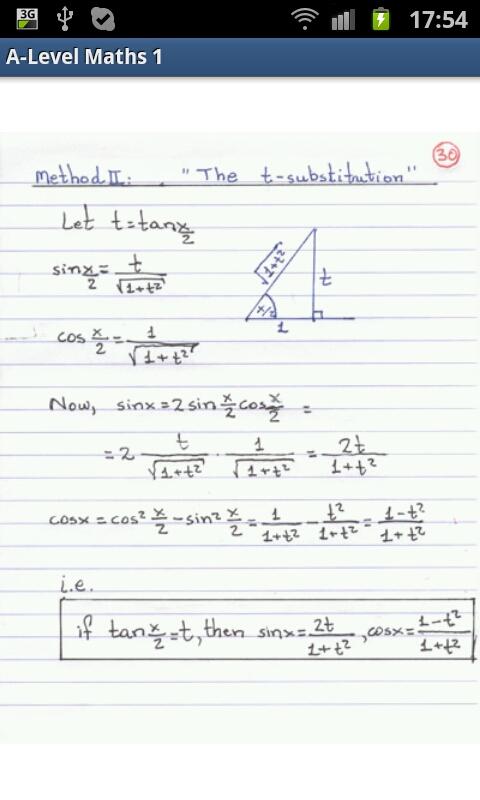 3G 17:54
A-Level Maths 1
30
Method II: "The t-substitution"
Let t=tan x/2
sin x/2 = t/√(1+t²)
√(1+t²) t
x/2
1
cos x/2 = 1/√(1+t²)
Now, sinx = 2 sin x/2 cos x/2 =
= 2 · t/√(1+t²) · 1/√(1+t²) = 2t/(1+t²)
cosx = cos² x/2 - sin² x/2 = 1/(1+t²) - t²/(1+t²) = (1-t²)/(1+t²)
i.e.
if tan x/2 = t, then sinx = 2t/(1+t²), cosx = (1-t²)/(1+t²)